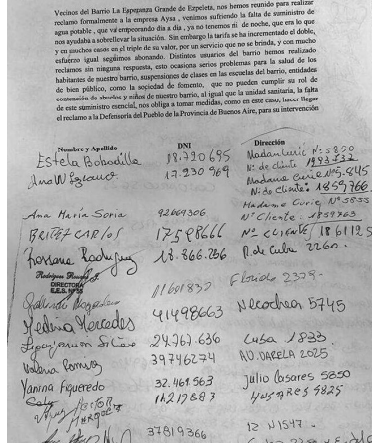 Vecinos del Barrio La Esperanza Grande de Ezpeleta, nos hemos reunido para realizar
reclamo formalmente a la empresa Aysa , venimos sufriendo la falta de suministro de
agua potable , que va empeorando día a día , ya no tenemos ni de noche, que era lo que
nos ayudaba a sobrellevar la situación. Sin embargo la tarifa se ha incrementado el doble,
y en muchos casos en el triple de su valor, por un servicio que no se brinda, y con mucho
esfuerzo igual seguimos abonando. Distintos usuarios del barrio hemos realizado
reclamos sin ninguna respuesta, esto ocasiona serios problemas para la salud de los
habitantes de nuestro barrio, suspensiones de clases en las escuelas del barrio, entidades
de bien público, como la sociedad de fomento, que no pueden cumplir su rol de
contención de abuelos y niños de nuestro barrio, al igual que la unidad sanitaria, la falta
de este suministro esencial, nos obliga a tomar medidas, como en este caso, hacer llegar
el reclamo a la Defensoría del Pueblo de la Provincia de Buenos Aire, para su intervención
Nombre y Apellido DNI Dirección
Estela Bobadilla 18.720695 Madan Curie Nº: 5820
Nº de cliente 1993532
Ana 17.230969 Madame Curie Nº 5.845
Nº de Cliente: 1859766
Ana Maria Soria 92669306 Madame Curie Nº 5855
Nº Cliente 1859763
BRITEZ CARLOS 17598666 Nº CLIENTE 1861125
Rossana Rodriguez 18.366.256 R. de Cuba 2260.
DIRECTORA
11601832 Florida 2329-
Medina Mercedes 41498663 Necochea 5745
24.767.636 Cuba 1833
Romina 39746274 AV. VARELA 2025
Yanina Figueredo 32.461.563 Julio Casares 5850
14217883 HUSARES 5825
37819366 12 N 1547